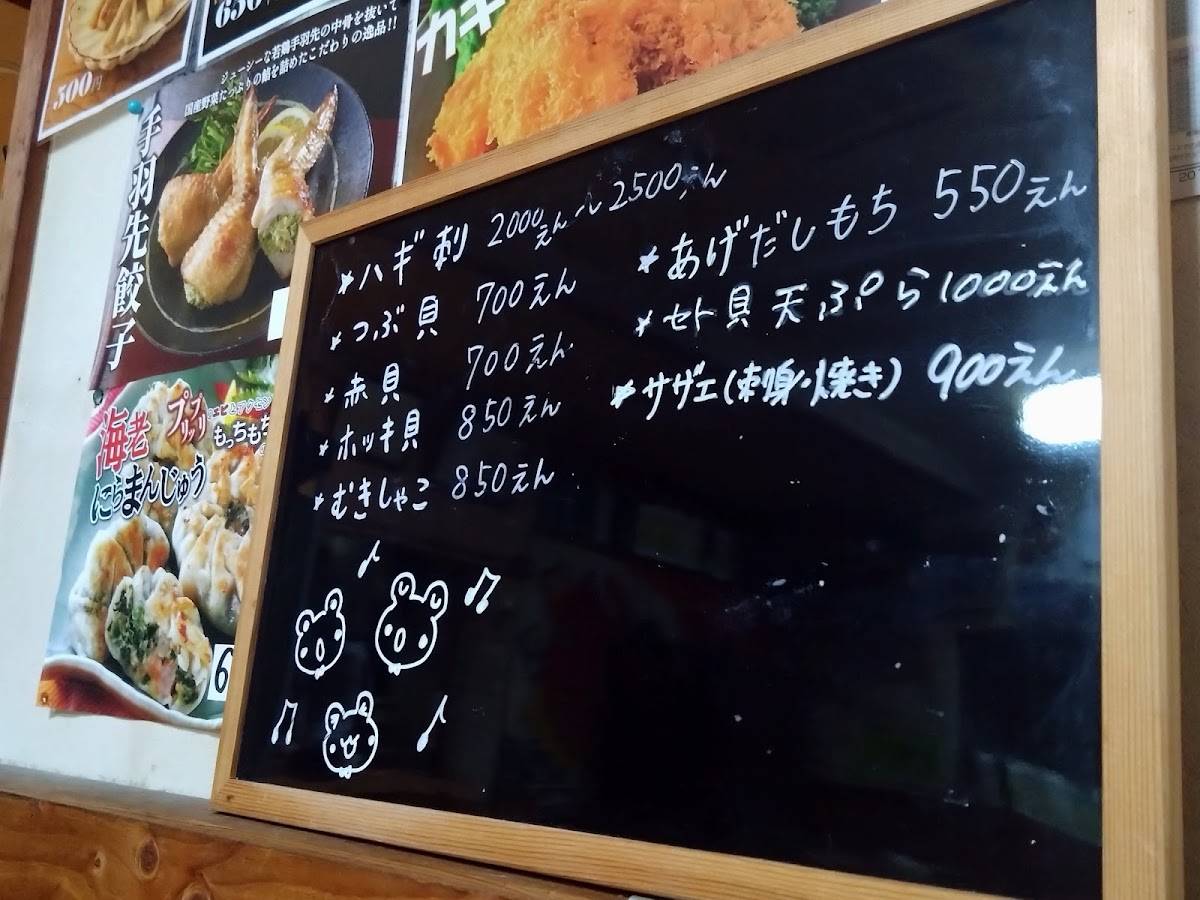 500円
650
ジューシーな若鶏手羽先の中骨を抜いて
国産野菜たっぷりの餡を詰めたこだわりの逸品!!
手羽先餃子
カキ
海老
プリップリッ
もっちもち
にらまんじゅう
6
*ハギ刺 2000えん~2500えん
*つぶ貝 700えん
*赤貝 700えん
*ホッキ貝 850えん
*むきしゃこ 850えん
*あげだしもち 550えん
*セト貝天ぷら 1000えん
*サザエ(刺身・焼き) 900えん